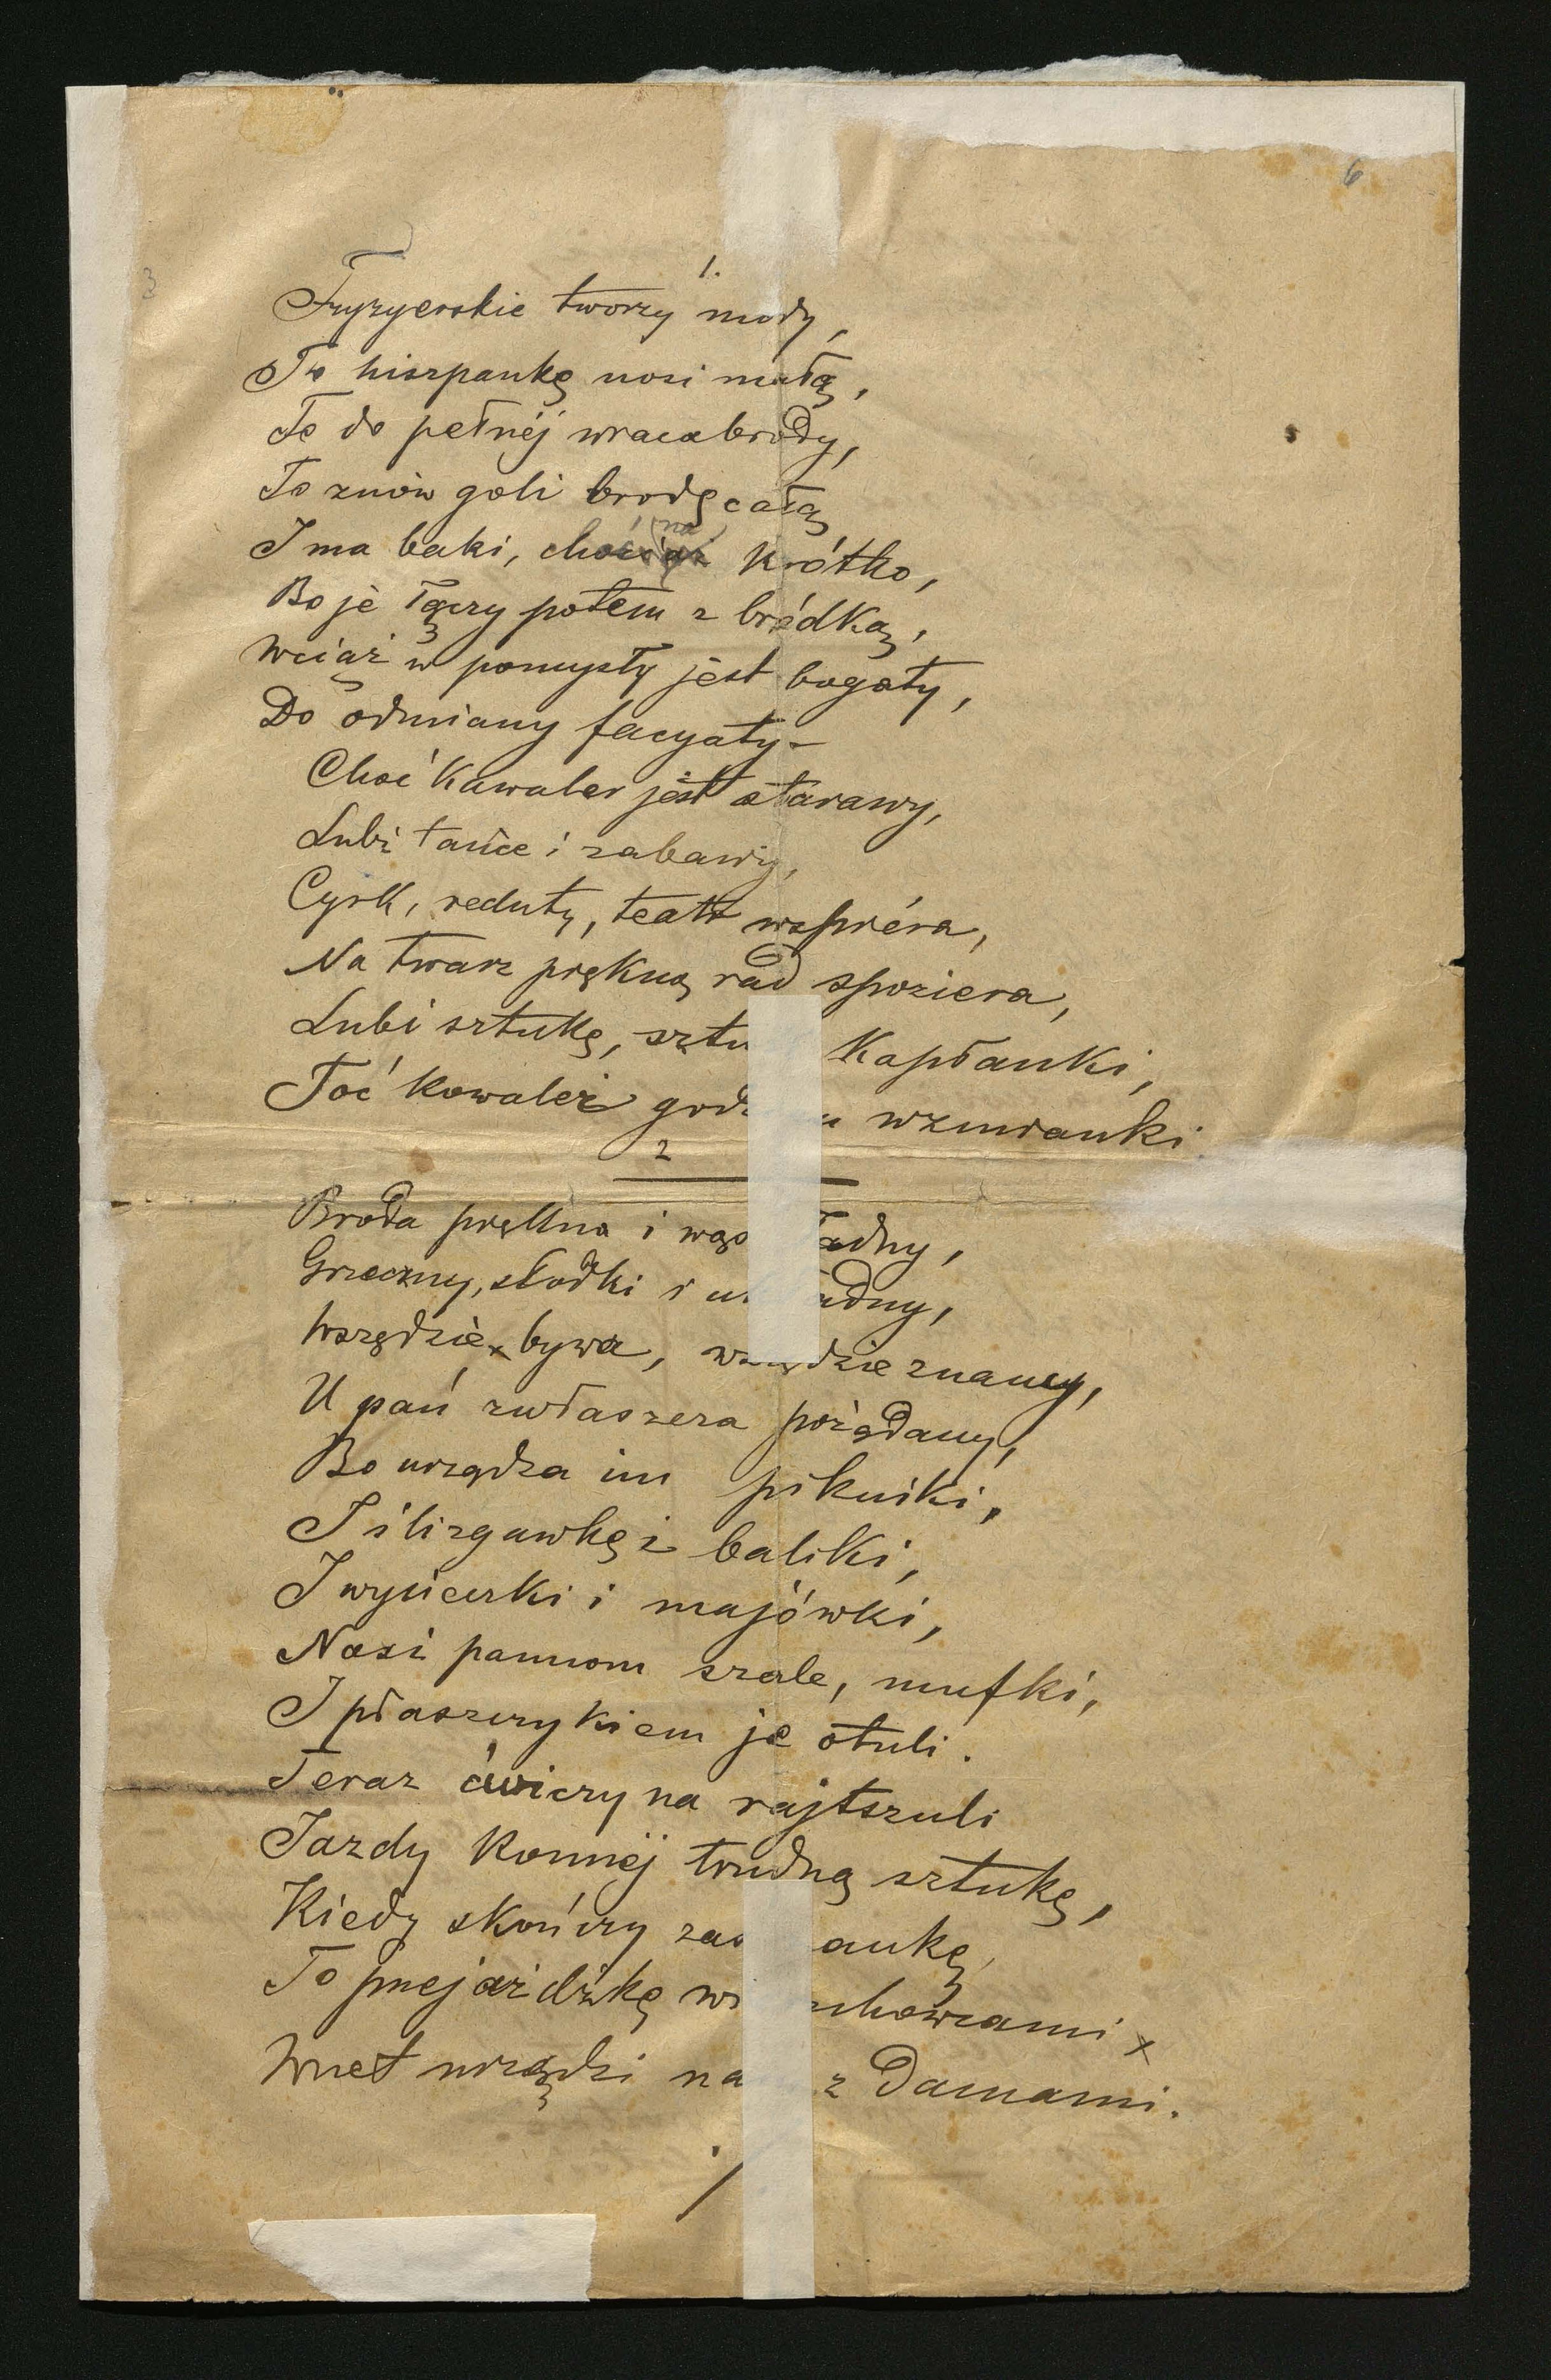 6
3
1.
Fryzyerskie tworzy mody,
To hiszpankę nosi małą,
To do pełnéj wraca brody,
To znów goli brodę całą
na
I ma baki, chociaż krótko,
Bo je łączy potem z bródką,
Wciąż w pomysły jest bogaty,
Do odmiany facyaty –
Choć kawaler jest starawy,
Lubi tańce i zabawy,
Cyrk, reduty, teatr wspiéra,
Na twarz piękną rad spoziera,
Lubi sztukę, sztu Kapłanki,
Toć kawaler god wzmianki
2
Broda piękna i wąs ładny,
Grzeczny, słodki i u adny,
Wszędzie bywa, wszędzie znany,
U pań zwłaszcza pożądany,
Bo urządza im pikniki,
I ślizgawkę i baliki,
I wycieczki i majówki,
Nosi pannom szale, mufki,
I płaszczykiem je otuli.
Teraz ćwiczy na rajtszuli
Jazdy konnéj trudną sztukę,
Kiedy skończy zaś aukę,
To przejażdżkę w chowcami x
Wnet urządzi na z Damami.